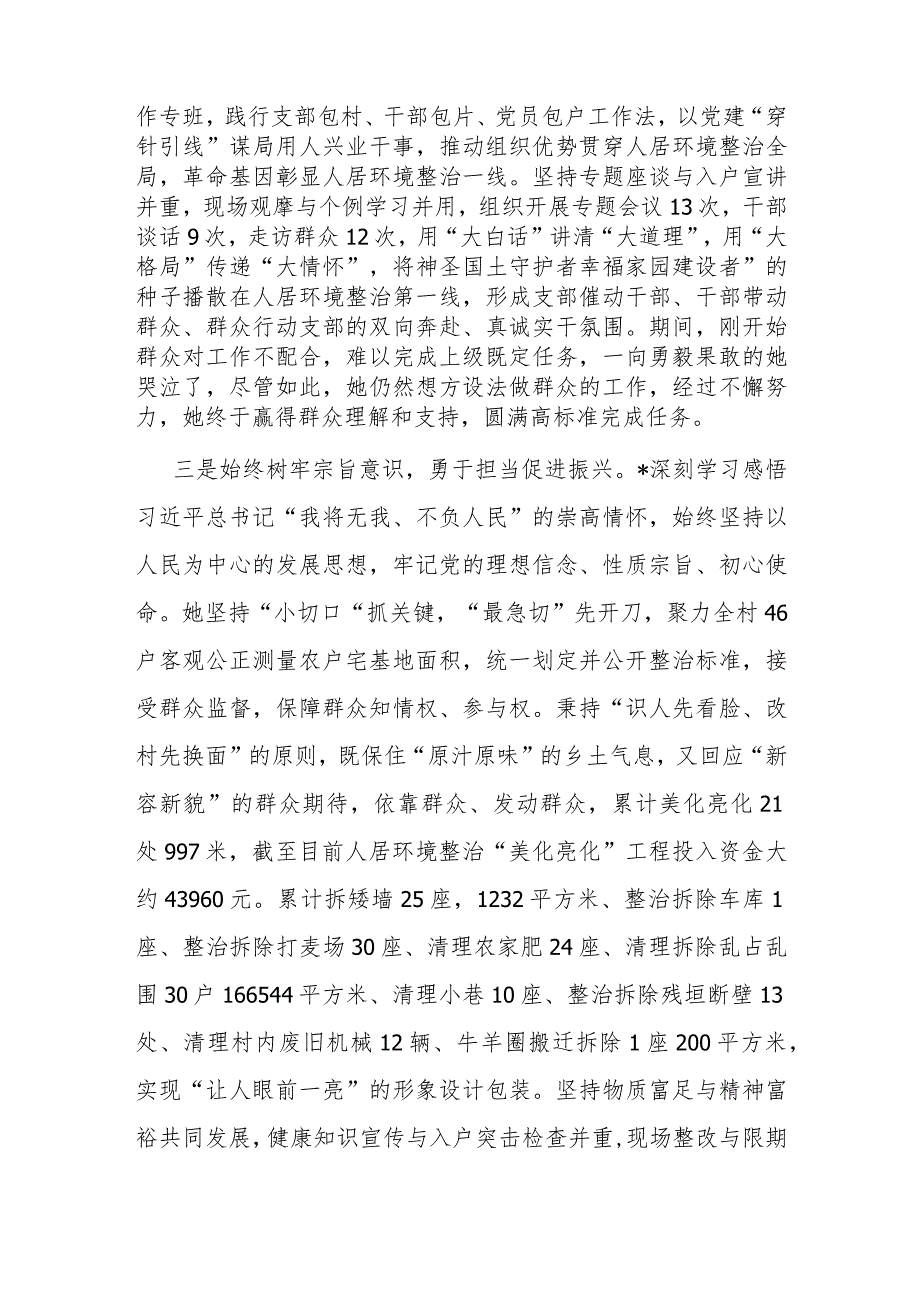 作专班，践行支部包村、干部包片、党员包户工作法，以党建“穿
针引线”谋局用人兴业干事，推动组织优势贯穿人居环境整治全
局，革命基因彰显人居环境整治一线。坚持专题座谈与入户宣讲
并重，现场观摩与个例学习并用，组织开展专题会议 13 次，干部
谈话 9 次，走访群众 12 次，用“大白话”讲清“大道理”，用“大
格局”传递“大情怀”，将神圣国土守护者幸福家园建设者”的
种子播散在人居环境整治第一线，形成支部催动干部、干部带动
群众、群众行动支部的双向奔赴、真诚实干氛围。期间，刚开始
群众对工作不配合，难以完成上级既定任务，一向勇毅果敢的她
哭泣了，尽管如此，她仍然想方设法做群众的工作，经过不懈努
力，她终于赢得群众理解和支持，圆满高标准完成任务。
三是始终树牢宗旨意识，勇于担当促进振兴。*深刻学习感悟
习近平总书记“我将无我、不负人民”的崇高情怀，始终坚持以
人民为中心的发展思想，牢记党的理想信念、性质宗旨、初心使
命。她坚持“小切口“抓关键，“最急切”先开刀，聚力全村 46
户客观公正测量农户宅基地面积，统一划定并公开整治标准，接
受群众监督，保障群众知情权、参与权。秉持“识人先看脸、改
村先换面”的原则，既保住“原汁原味”的乡土气息，又回应“新
容新貌”的群众期待，依靠群众、发动群众，累计美化亮化 21
处 997 米，截至目前人居环境整治“美化亮化”工程投入资金大
约 43960 元。累计拆矮墙 25 座，1232 平方米、整治拆除车库 1
座、整治拆除打麦场 30 座、清理农家肥 24 座、清理拆除乱占乱
围 30 户 166544 平方米、清理小巷 10 座、整治拆除残垣断壁 13
处、清理村内废旧机械 12 辆、牛羊圈搬迁拆除 1 座 200 平方米，
实现“让人眼前一亮”的形象设计包装。坚持物质富足与精神富
裕共同发展，健康知识宣传与入户突击检查并重，现场整改与限期